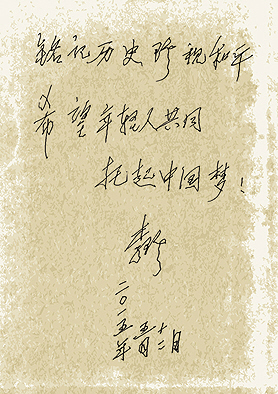 铭记历史 珍视和平
希望年轻人共同
托起中国梦！
二〇一五年
五月十二日